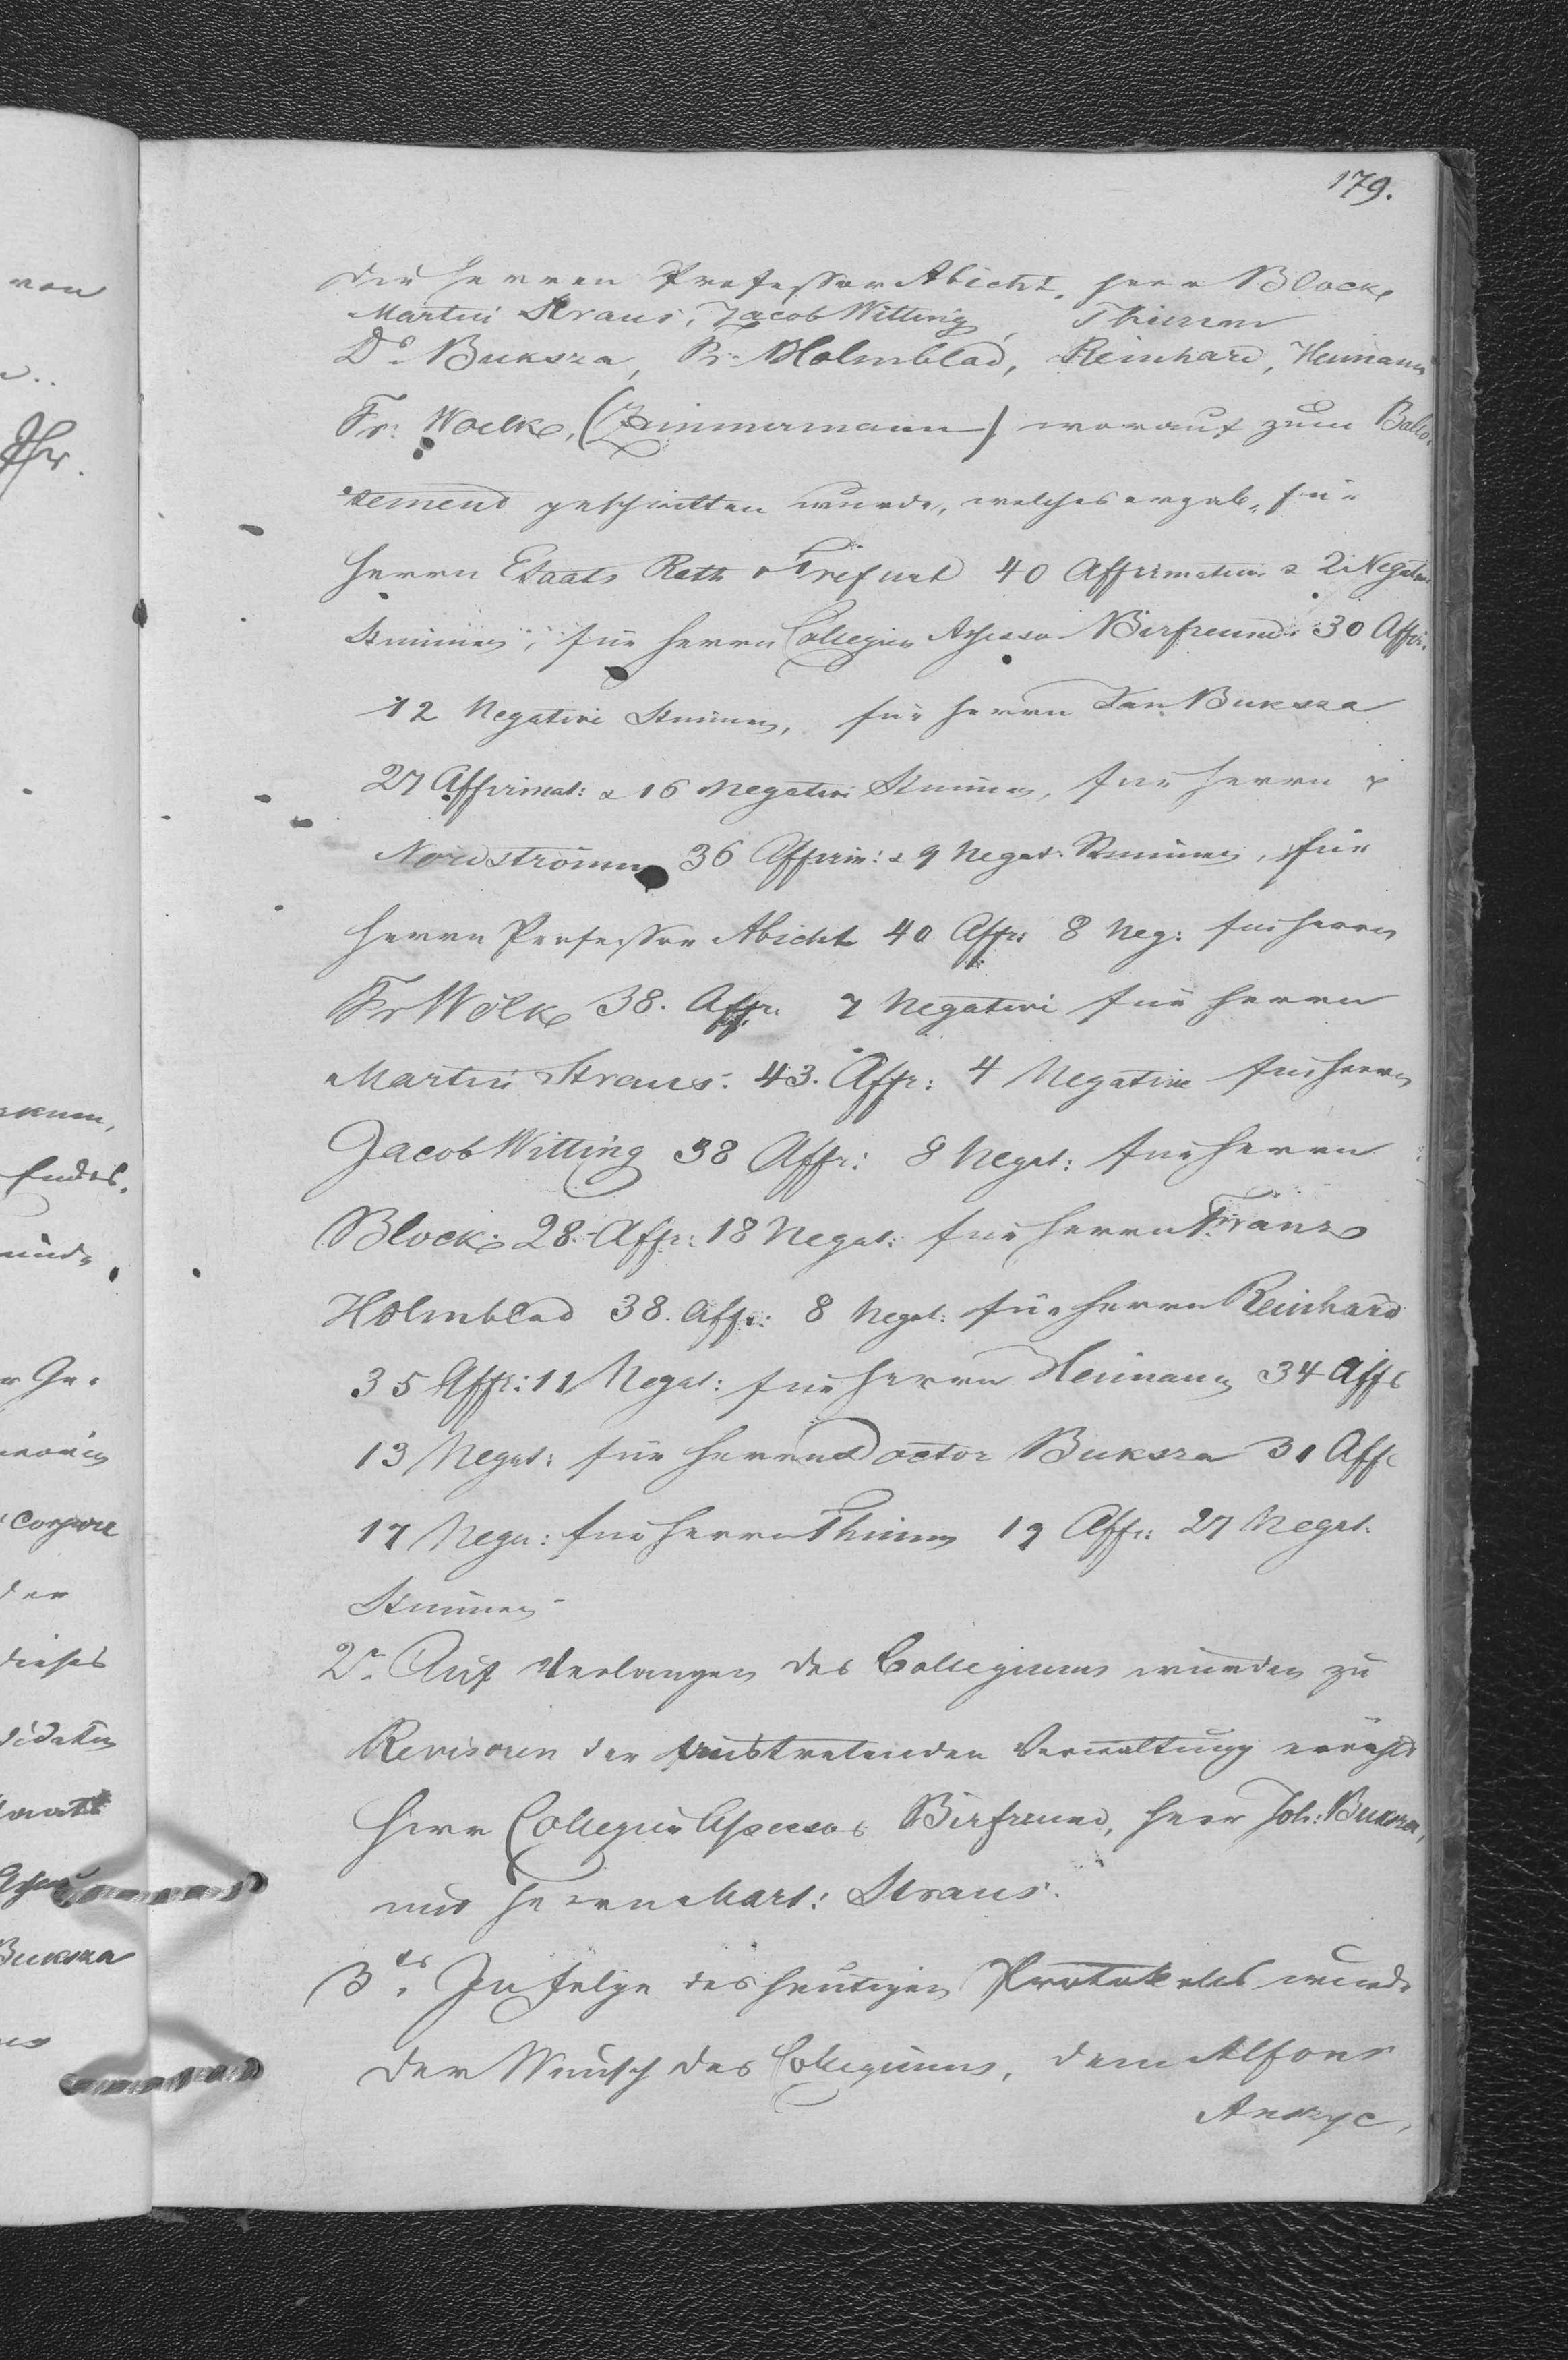 179.
die Herren Professor Abicht, Herr Block,
Martin Straus, Jacob Witting, Thimm
Dr Buksza, Fr. Holmblad, Reinhard, Heimann
Fr: Woelke, (Zimmermann) worauf zum Ballo-
tement geschritten wurde, welches ergab, für
Herrn Etaats Rath v Trefurt 40 Affirmative & 2 Negative
Stimmen, für Herrn Collegien Assessor Birfreund 30 Affir.
12 Negative Stimmen, für Herrn Jan Buksza
27 Affirmat: & 16 Negative Stimmen, für Herrn
Nordströmm 36 Affirm: & 9 Negat: Stimmen, für
Herrn Professor Abicht 40 Affr: 8 Neg: für Herrn
Fr Wölke 38. Affr. 7 Negative für Herrn
Martin Straus: 43. Affr: 4 Negative für Herrn
Jacob Witting 38 Affr: 8 Negat: für Herrn
Block: 28. Affr: 18 Negat: für Herrn Franz
Holmblad 38. Affr: 8 Negat: für Herrn Reinhard
35 Affr: 11 Negat: für Herrn Heimann 34 Affr
13 Negat: für Herrn Doctor Buksza 31 Affr
17 Nega: für Herrn Thimm 19 Affr: 27 Negat.
Stimmen
2. Auf Verlangen des Collegiums wurden zu
Revisoren der austretenden Verwaltung erwählt
Herr Collegien Assessor Birfreund, Herr Joh: Buksza,
und Herrn Mart: Straus.
3. In Folge des heutigen Protokolles wurde
der Wunsch des Collegiums, dem Alfons